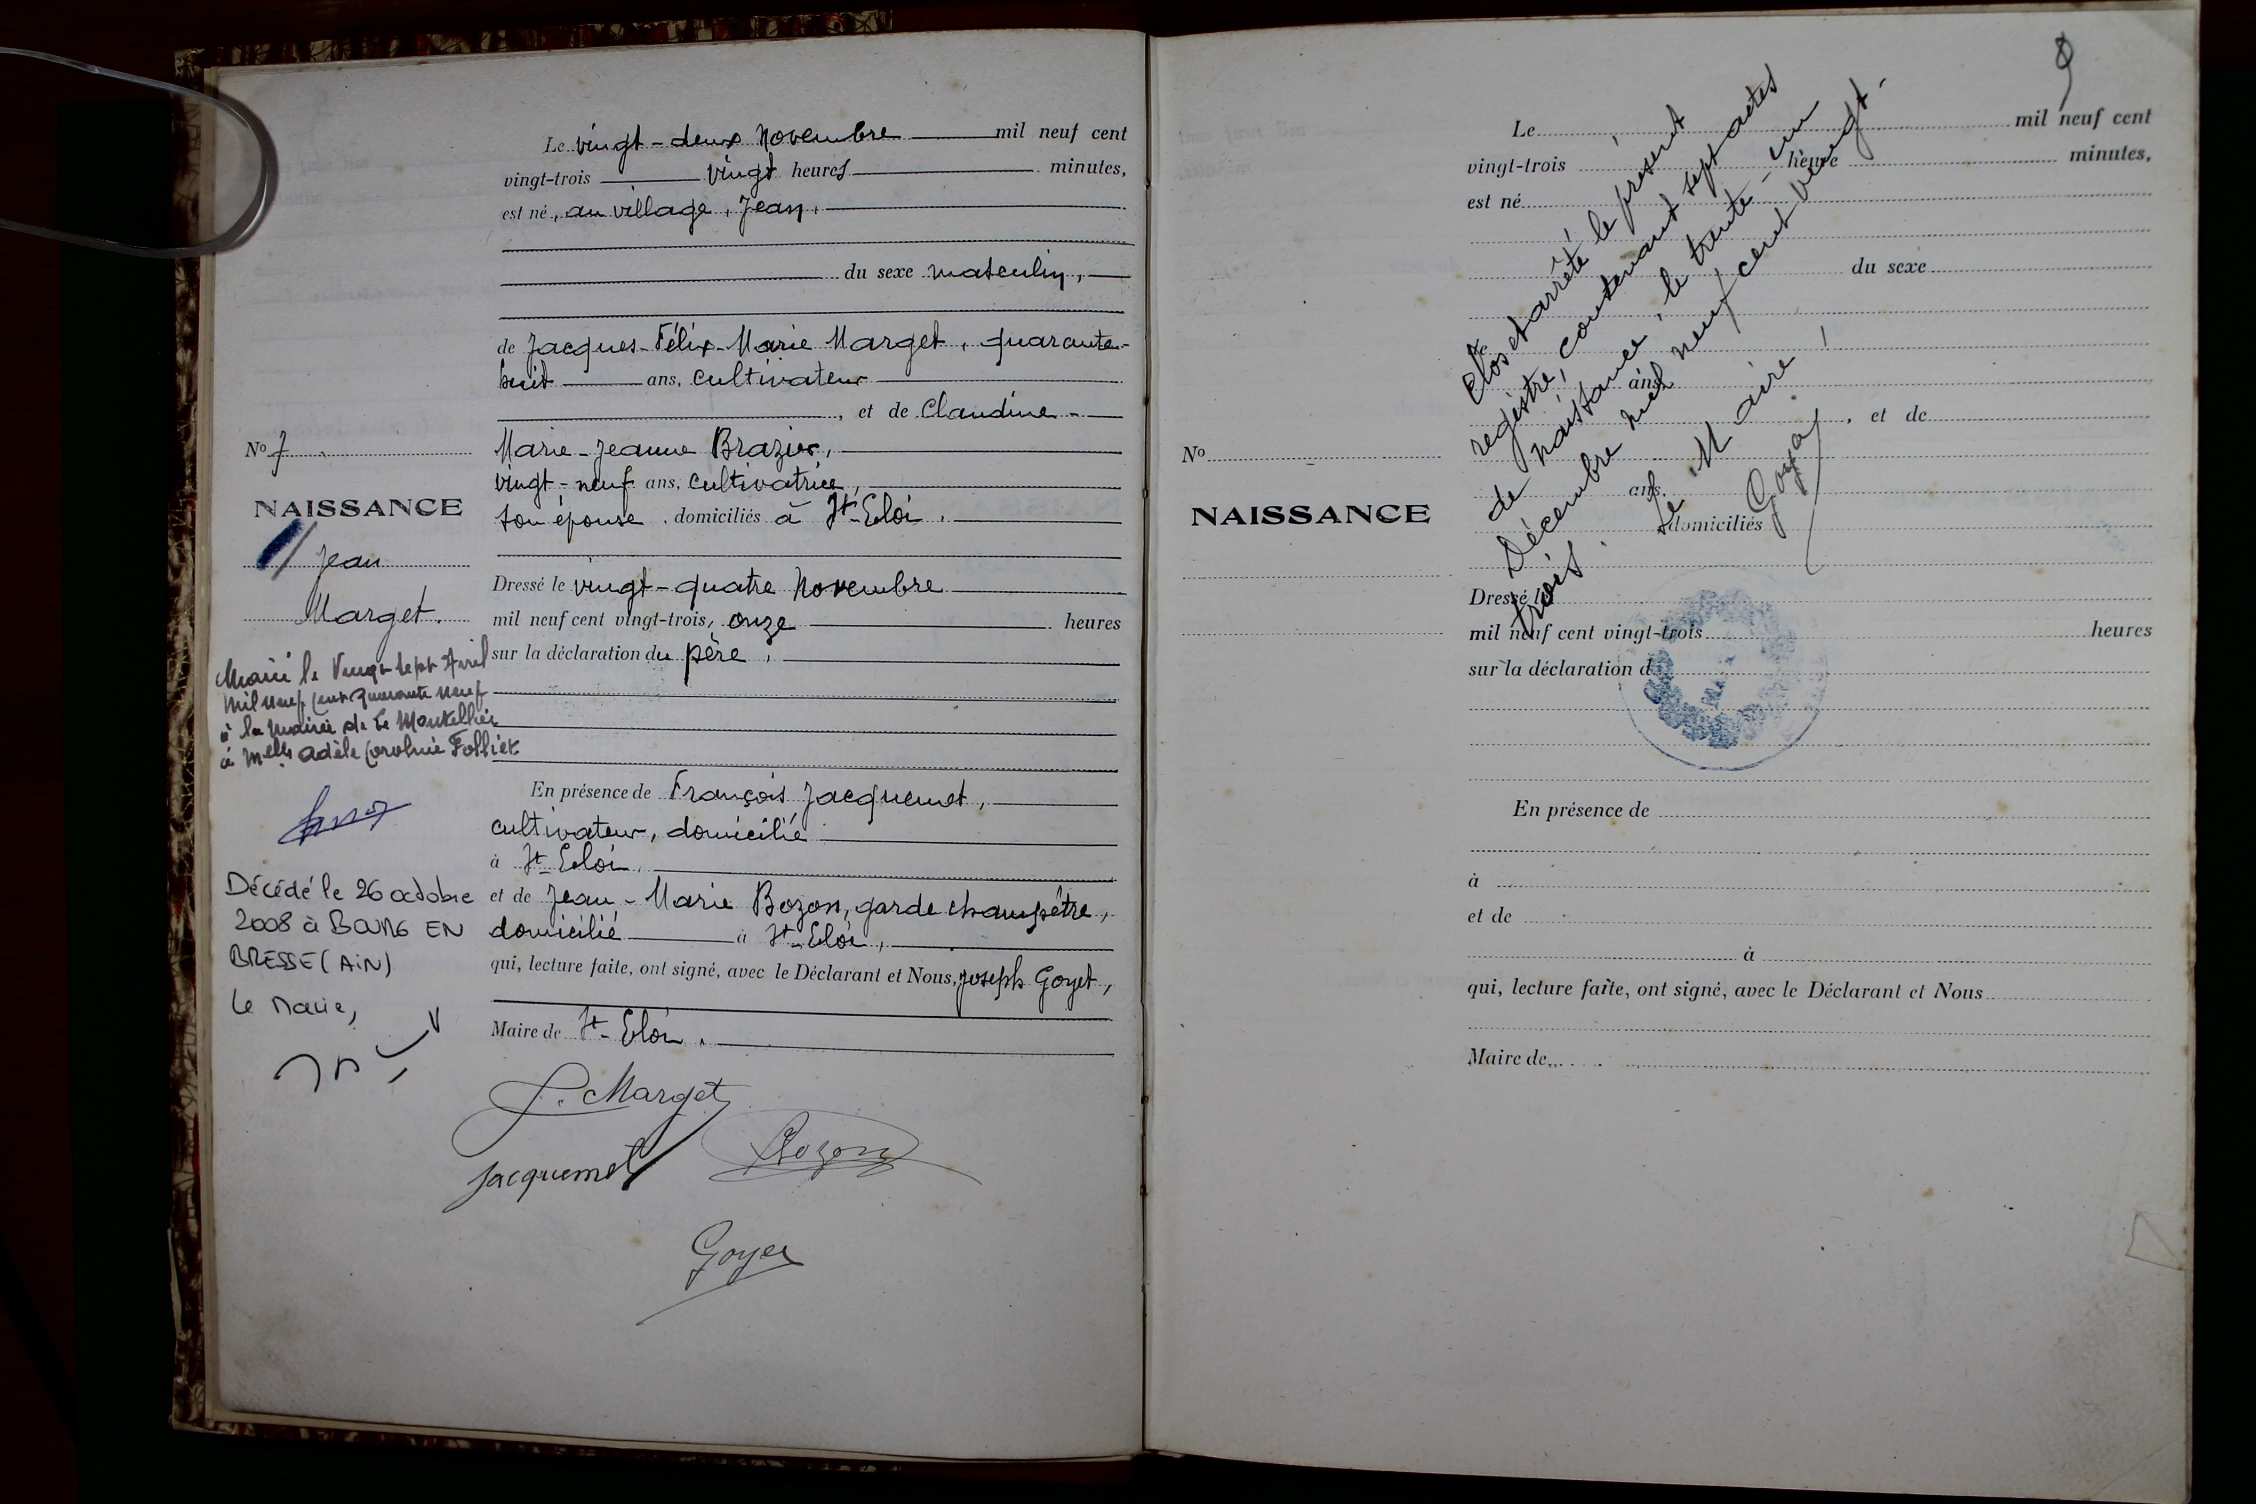 Le vingt-deux Novembre mil neuf cent
vingt-trois vingt heures minutes,
est né, au village, Jean,
du sexe masculin,
de Jacques-Félix-Marie Marget, quarante-
huit ans, cultivateur
, et de Claudine-
Marie-Jeanne Brazier,
vingt-neuf ans, cultivatrice,
son épouse, domiciliés à St-Eloi.
Dressé le vingt-quatre Novembre
mil neuf cent vingt-trois, onze heures
sur la déclaration du père,
En présence de François Jacquemet,
cultivateur, domicilié
à St-Eloi,
et de Jean-Marie Bozon, garde champêtre,
domicilié à St-Eloi,
qui, lecture faite, ont signé, avec le Déclarant et Nous, Joseph Goyet,
Maire de St-Eloi.
J. Marget
Jacquemet Bozon
Goyet
No 7
NAISSANCE
Jean
Marget.
Marié le Vingt sept Avril
mil neuf cent quarante neuf
à la mairie de Le Montellier
à Melle Adèle Caroline Folliet
Décédé le 26 octobre
2008 à BOURG EN
BRESSE (AIN)
Le Maire,
9
No
NAISSANCE
Le mil neuf cent
vingt-trois heure minutes,
est né
du sexe
ans,
, et de
ans,
domiciliés
Dressé le
mil neuf cent vingt-trois heures
sur la déclaration d
En présence de
à
et de
à
qui, lecture faite, ont signé, avec le Déclarant et Nous
Maire de
Clos et arrêté le présent
registre, contenant sept actes
de naissance, le trente-un
Décembre mil neuf cent vingt-
trois.
Le Maire,
Goyet